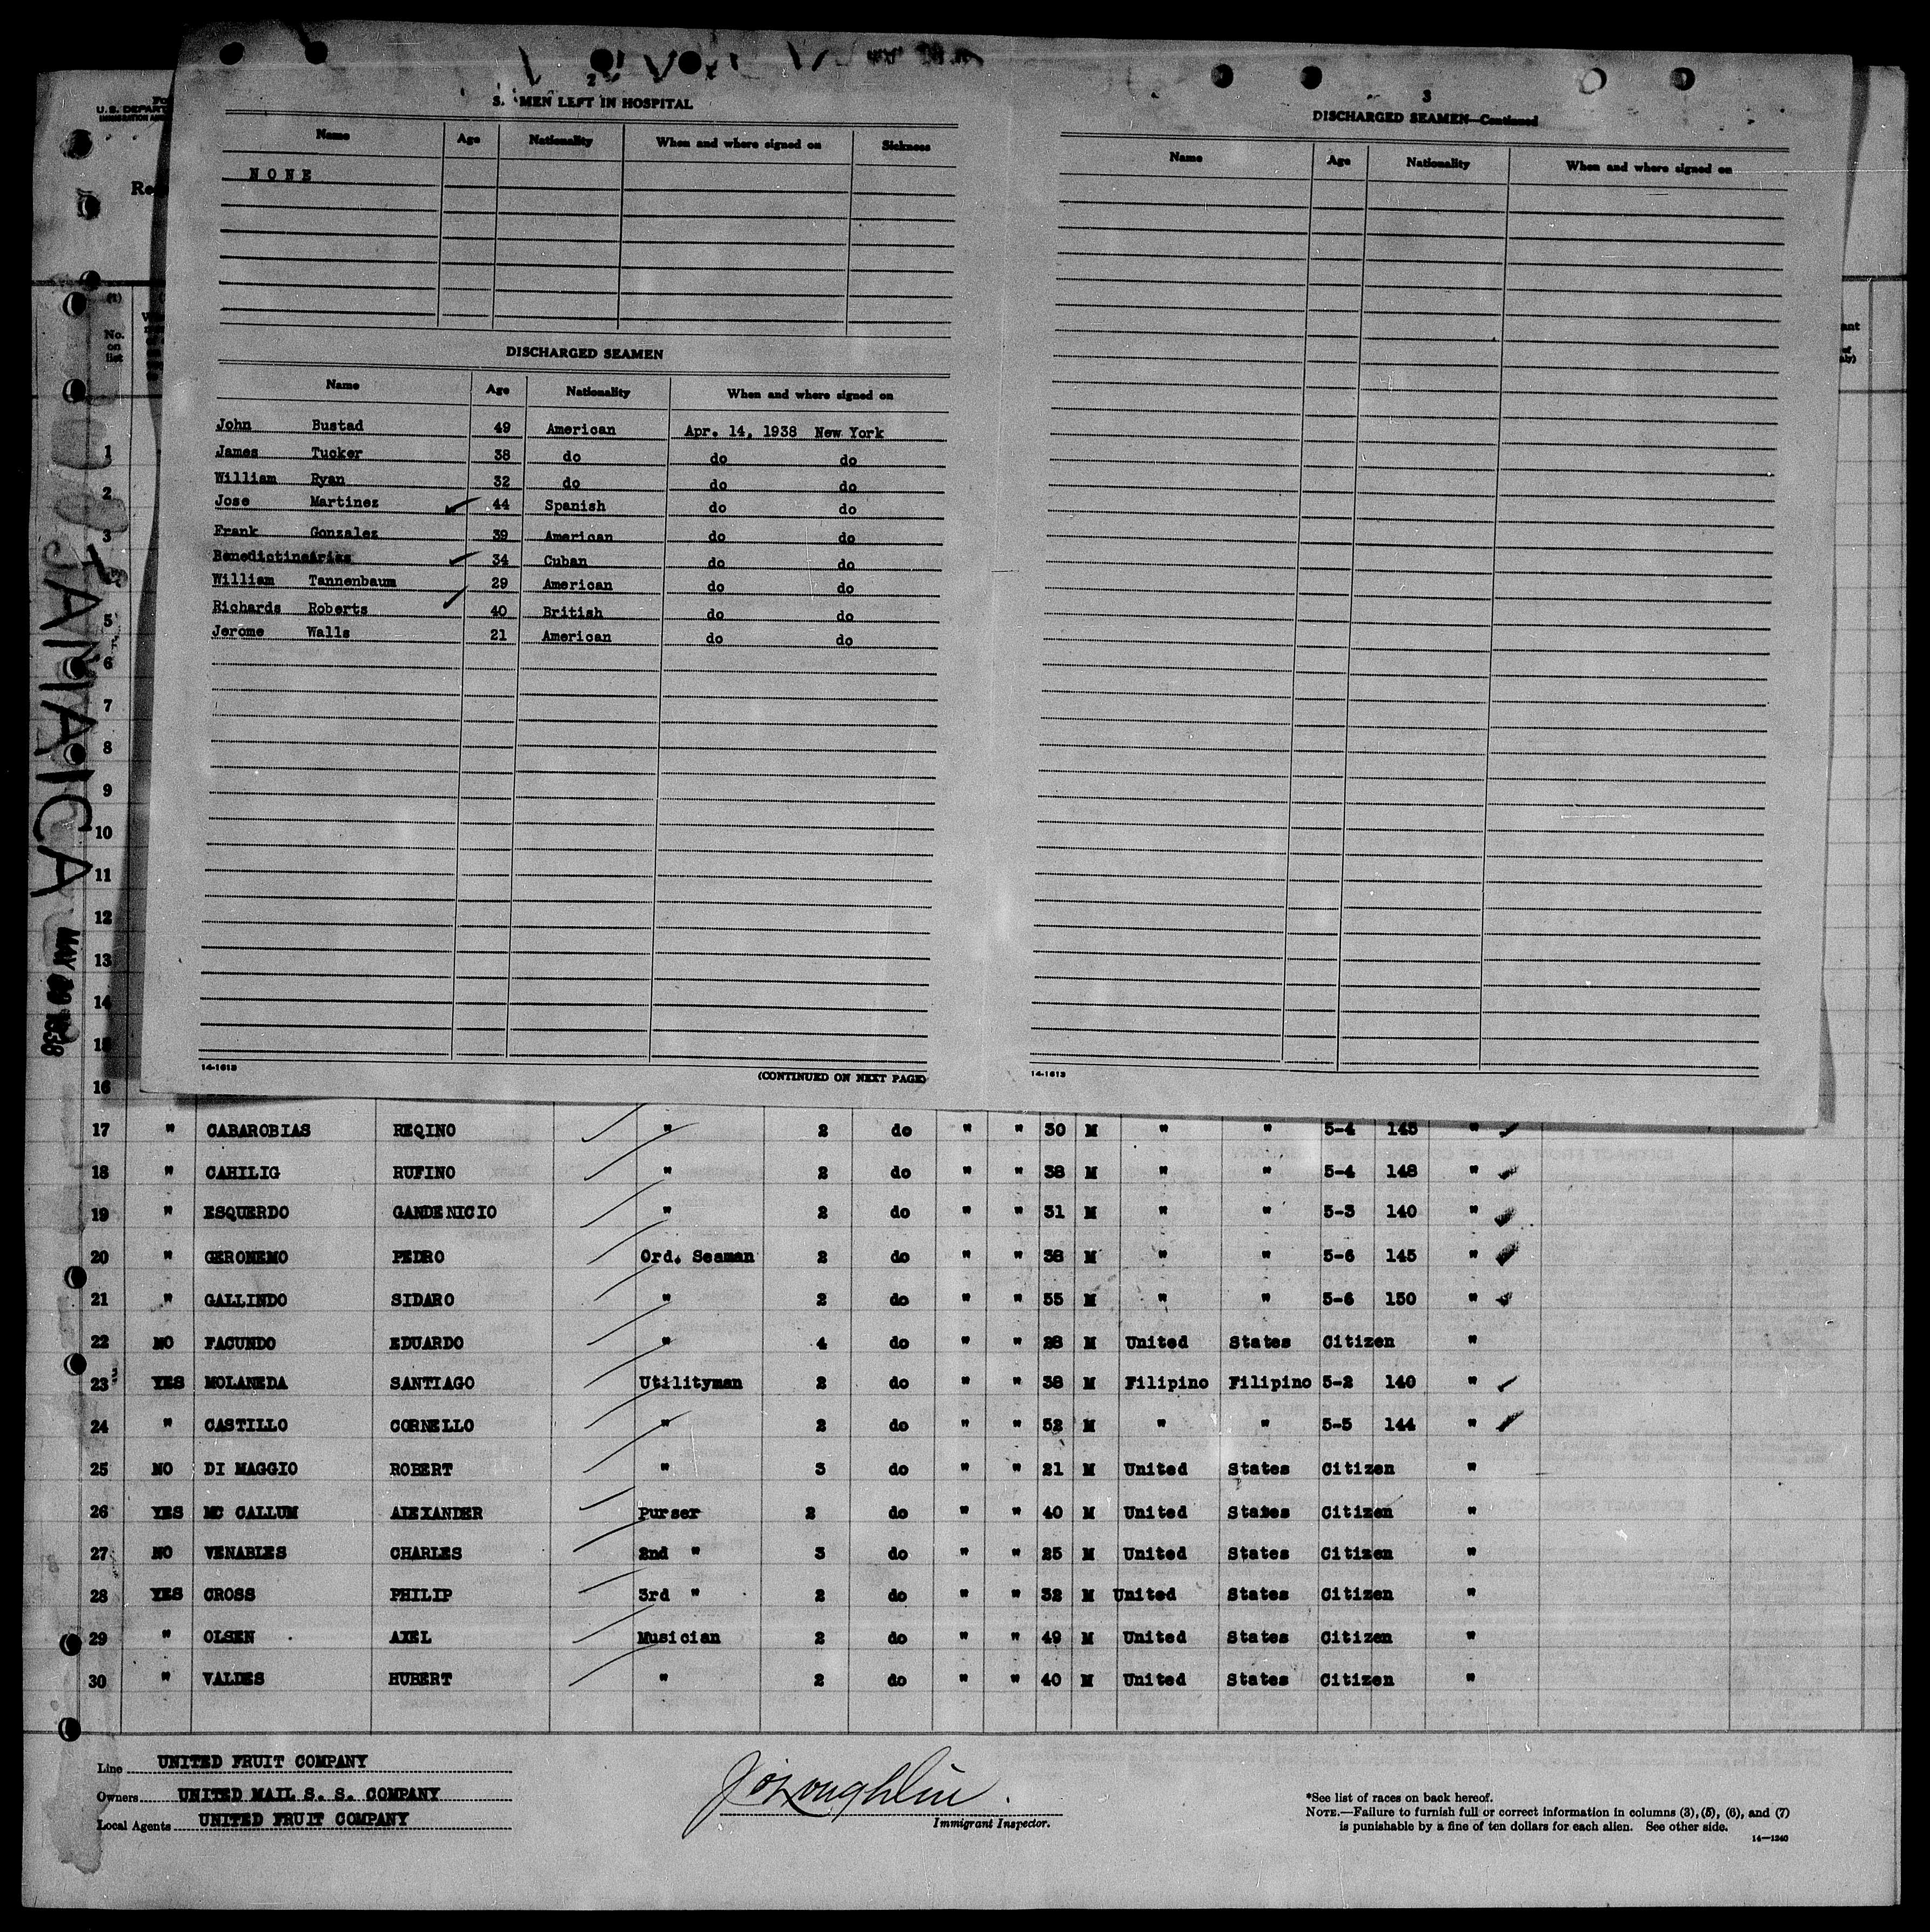 2
MEN LEFT IN HOSPITAL
Name Age Nationality When and where signed on Sickness
NONE
DISCHARGED SEAMEN
Name Age Nationality When and where signed on
John Bustad 49 American Apr. 14, 1938 New York
James Tucker 38 do do do
William Ryan 32 do do do
Jose Martinez 44 Spanish do do
Frank Gonzalez 39 American do do
34 Cuban do do
William Tannenbaum 29 American do do
Richards Roberts 40 British do do
Jerome Walls 21 American do do
14-1613
(CONTINUED ON NEXT PAGE)
3
DISCHARGED SEAMEN—Continued
Name Age Nationality When and where signed on
14-1613
U.S. DEPART
(1)
No. on list
JAMAICA
MAY 1938
1
2
3
5
6
7
8
9
10
11
12
13
14
15
16
17 " CABAROBIAS REQINO " 2 do " " 30 M " " 5-4 145 "
18 " CAHILIG RUFINO " 2 do " " 38 M " " 5-4 148 "
19 " ESQUERDO GANDENICIO " 2 do " " 31 M " " 5-3 140 "
20 " GERONEMO PEDRO Ord. Seaman 2 do " " 38 M " " 5-6 145 "
21 " GALLINDO SIDARO " 2 do " " 55 M " " 5-6 150 "
22 NO FACUNDO EDUARDO " 4 do " " 28 M United States Citizen "
23 YES MOLANEDA SANTIAGO Utilityman 2 do " " 38 M Filipino Filipino 5-2 140 "
24 " CASTILLO CORNELLO " 2 do " " 52 M " " 5-5 144 "
25 NO DI MAGGIO ROBERT " 3 do " " 21 M United States Citizen "
26 YES MC CALLUM ALEXANDER Purser 2 do " " 40 M United States Citizen "
27 NO VENABLES CHARLES 2nd " 3 do " " 25 M United States Citizen "
28 YES CROSS PHILIP 3rd " 2 do " " 32 M United States Citizen "
29 " OLSEN AXEL Musician 2 do " " 49 M United States Citizen "
30 " VALDES HUBERT " 2 do " " 40 M United States Citizen "
Line UNITED FRUIT COMPANY
Owners UNITED MAIL S. S. COMPANY
Local Agents UNITED FRUIT COMPANY
J O'Loughlin
Immigrant Inspector.
*See list of races on back hereof.
NOTE.—Failure to furnish full or correct information in columns (3), (5), (6), and (7)
is punishable by a fine of ten dollars for each alien. See other side.
14—1240